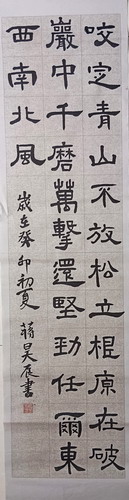 咬定青山不放松立根原在破
巖中千磨萬擊還堅勁任爾東
西南北風
歲在癸卯初夏 蔣昊辰書